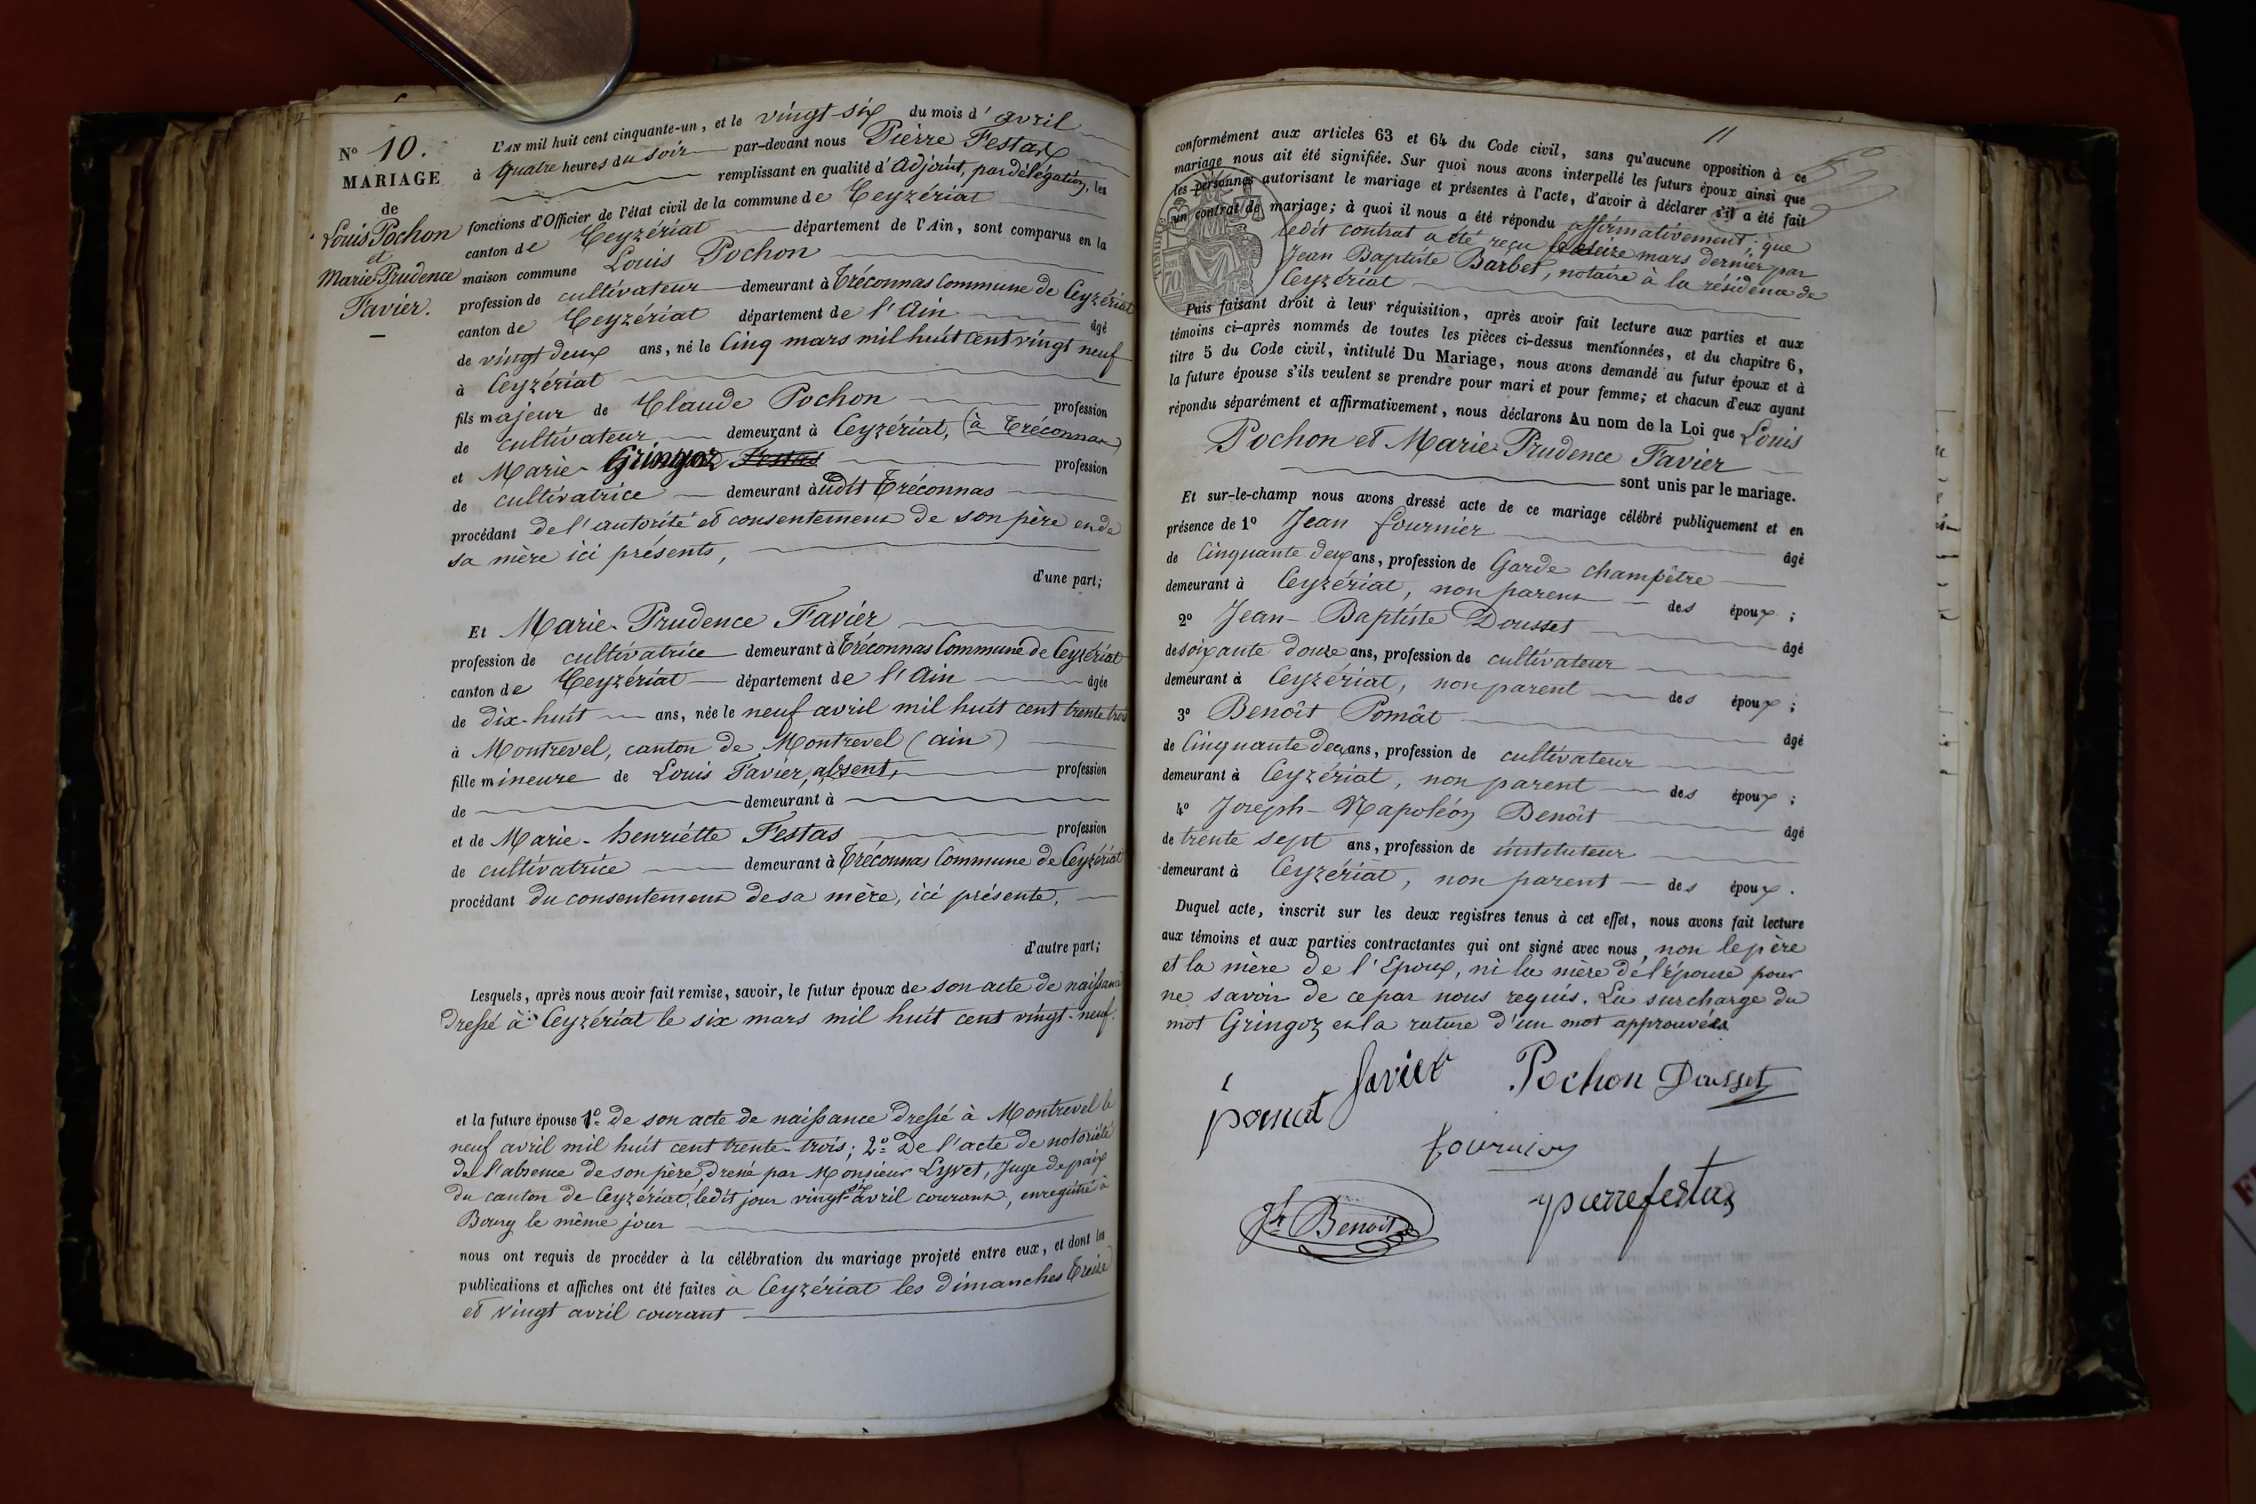 N° 10.
MARIAGE
de
Louis Pochon
et
Marie-Prudence
Favier.
L'AN mil huit cent cinquante-un, et le vingt-six du mois d'avril
à quatre heures du soir par-devant nous Pierre Festas
remplissant en qualité d'Adjoint, par délégation, les
fonctions d'Officier de l'état civil de la commune de Ceyzériat
canton de Ceyzériat département de l'Ain, sont comparus en la
maison commune Louis Pochon
profession de cultivateur demeurant à Tréconnas Commune de Ceyzériat
canton de Ceyzériat département de l'Ain âgé
de vingt deux ans, né le Cinq mars mil huit cent vingt neuf
à Ceyzériat
fils majeur de Claude Pochon profession
de cultivateur demeurant à Ceyzériat, (à Tréconnas)
et Marie-Gringoz Festas profession
de cultivatrice demeurant à udit Tréconnas
procédant de l'autorité et consentement de son père et de
sa mère ici présents,
d'une part;
Et Marie-Prudence Favier
profession de cultivatrice demeurant à Tréconnas Commune de Ceyzériat
canton de Ceyzériat département de l'Ain âgée
de dix-huit ans, née le neuf avril mil huit cent trente trois
à Montrevel, canton de Montrevel (ain)
fille mineure de Louis Favier, absent, profession
de demeurant à
et de Marie-henriétte Festas profession
de cultivatrice demeurant à Tréconnas Commune de Ceyzériat
procédant du consentement de sa mère, ici présente,
d'autre part;
Lesquels, après nous avoir fait remise, savoir, le futur époux de son acte de naissance
dressé à Ceyzériat le six mars mil huit cent vingt-neuf.
et la future épouse 1° de son acte de naissance dressé à Montrevel le
neuf avril mil huit cent trente-trois; 2° De l'acte de notoriété
de l'absence de son père, dressé par Monsieur Lyvet, Juge de paix
du canton de Ceyzériat, ledit jour vingt-six avril courant, enregistré à
Bourg le même jour
nous ont requis de procéder à la célébration du mariage projeté entre eux, et dont les
publications et affiches ont été faites à Ceyzériat les dimanches treize
et vingt avril courant
11
conformément aux articles 63 et 64 du Code civil, sans qu'aucune opposition à ce
mariage nous ait été signifiée. Sur quoi nous avons interpellé les futurs époux ainsi que
les personnes autorisant le mariage et présentes à l'acte, d'avoir à déclarer s'il a été fait
un contrat de mariage; à quoi il nous a été répondu affirmativement; que
ledit contrat a été reçu le seize mars dernier par
Jean Baptiste Barbet, notaire à la résidence de
Ceyzériat
Puis faisant droit à leur réquisition, après avoir fait lecture aux parties et aux
témoins ci-après nommés de toutes les pièces ci-dessus mentionnées, et du chapitre 6,
titre 5 du Code civil, intitulé Du Mariage, nous avons demandé au futur époux et à
la future épouse s'ils veulent se prendre pour mari et pour femme; et chacun d'eux ayant
répondu séparément et affirmativement, nous déclarons Au nom de la Loi que Louis
Pochon et Marie-Prudence Favier
sont unis par le mariage.
Et sur-le-champ nous avons dressé acte de ce mariage célébré publiquement et en
présence de 1° Jean fournier âgé
de Cinquante deux ans, profession de Garde champêtre
demeurant à Ceyzériat, non parent des époux;
2° Jean-Baptiste Dousset âgé
de soixante douze ans, profession de cultivateur
demeurant à Ceyzériat, non parent des époux;
3° Benoît Pomât âgé
de Cinquante deux ans, profession de cultivateur
demeurant à Ceyzériat, non parent des époux;
4° Joseph-Napoléon Benoît âgé
de trente sept ans, profession de instituteur
demeurant à Ceyzériat, non parent des époux.
Duquel acte, inscrit sur les deux registres tenus à cet effet, nous avons fait lecture
aux témoins et aux parties contractantes qui ont signé avec nous, non le père
et la mère de l'Epoux, ni la mère de l'épouse pour
ne savoir de ce par nous requis. La surcharge du
mot Gringoz et la rature d'un mot approuvées
pomat favier Pochon Dousset
fournier
Jh Benoit pierre festas